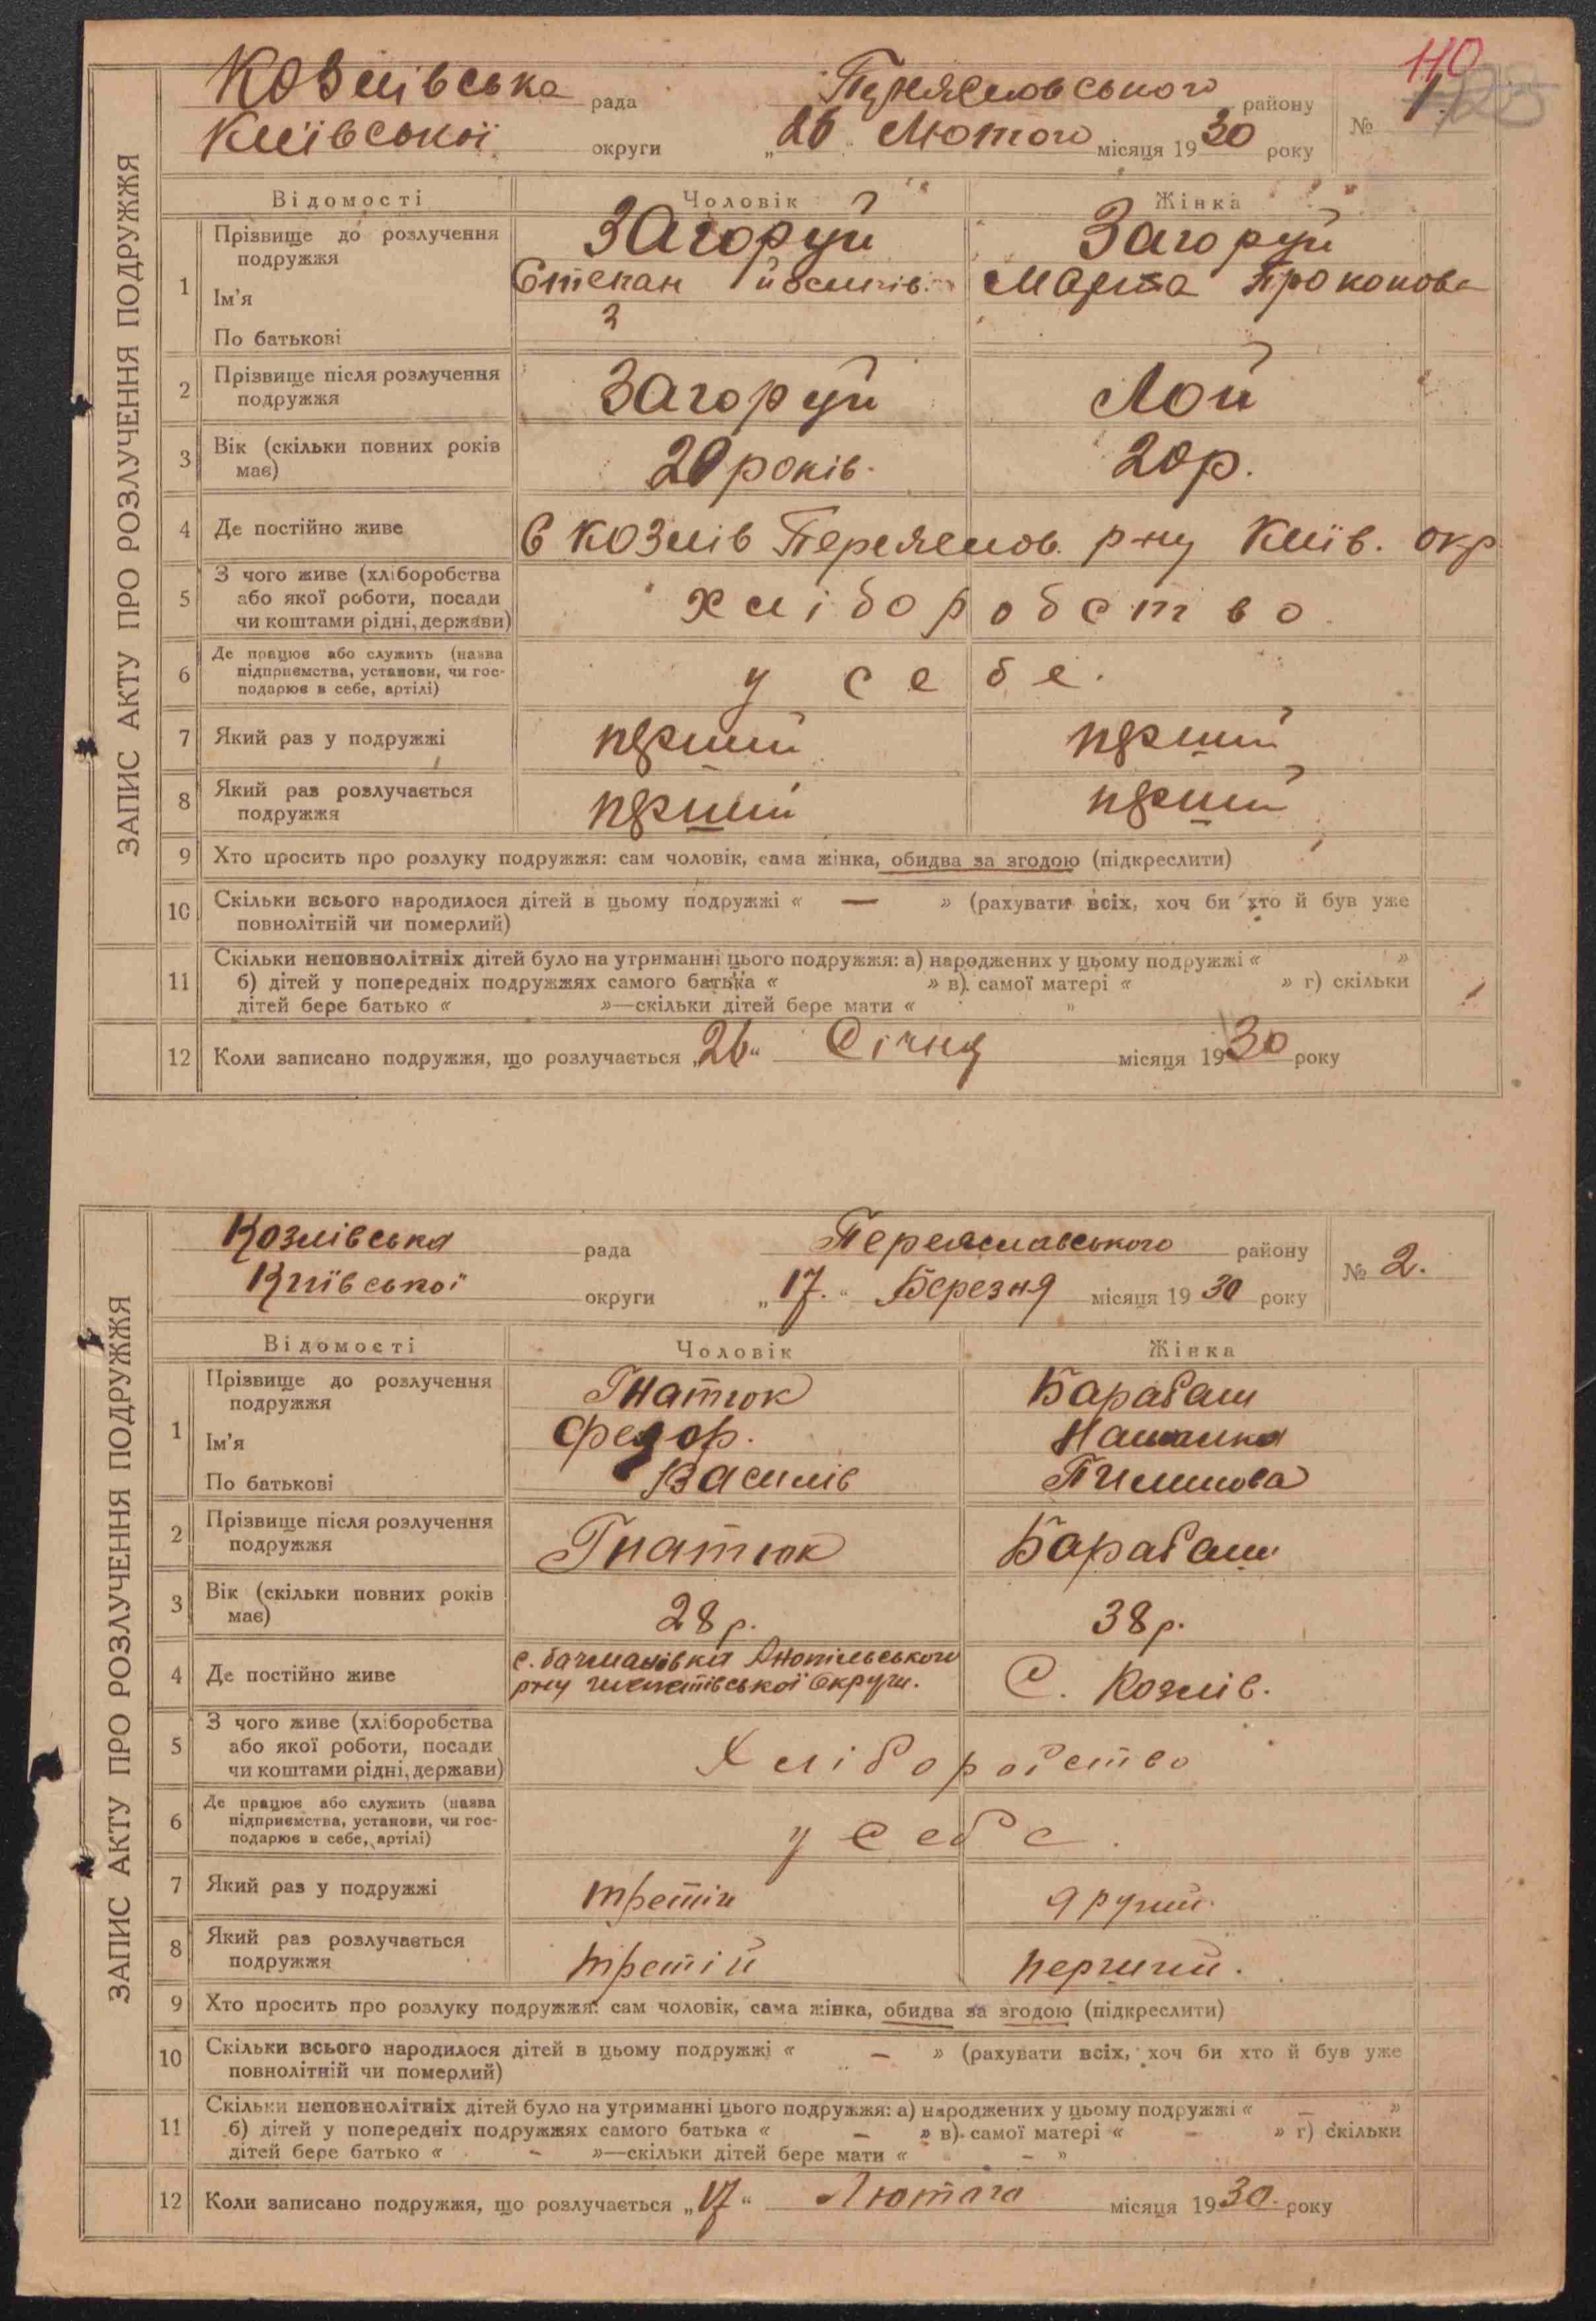 110
Козлівська рада Переяславського району № 1.
Київської округи „26" Лютого місяця 1930 року
ЗАПИС АКТУ ПРО РОЗЛУЧЕННЯ ПОДРУЖЖЯ
Відомості Чоловік Жінка
1 Прізвище до розлучення подружжя Загоруй Загоруй
Ім'я Степан Йосипів. Марта Прокопова
По батькові
2 Прізвище після розлучення подружжя Загоруй Лой
3 Вік (скільки повних років має) 20 років. 20р.
4 Де постійно живе С Козлів Переяслов. р-ну Київ. окр
5 З чого живе (хліборобства або якої роботи, посади чи коштами рідні, держави) хліборобство.
6 Де працює або служить (назва підприємства, установи, чи господарює в себе, артілі) у себе.
7 Який раз у подружжі перший перший
8 Який раз розлучається подружжя перший перший
9 Хто просить про розлуку подружжя: сам чоловік, сама жінка, обидва за згодою (підкреслити)
10 Скільки всього народилося дітей в цьому подружжі « — » (рахувати всіх, хоч би хто й був уже
повнолітній чи померлий)
11 Скільки неповнолітніх дітей було на утриманні цього подружжя: а) народжених у цьому подружжі « »
б) дітей у попередніх подружжях самого батька « » в). самої матері « » г) скільки
дітей бере батько « »—скільки дітей бере мати « »
12 Коли записано подружжя, що розлучається „26" Січня місяця 1930 року
Козлівська рада Переяславського району № 2.
Київської округи „17." Березня місяця 1930 року
ЗАПИС АКТУ ПРО РОЗЛУЧЕННЯ ПОДРУЖЖЯ
Відомості Чоловік Жінка
1 Прізвище до розлучення подружжя Гнатюк Барабаш
Ім'я Федор. Наталка
По батькові Василів Пилипова
2 Прізвище після розлучення подружжя Гнатюк Барабаш
3 Вік (скільки повних років має) 28р. 38р.
4 Де постійно живе с. Бачманівка Антонільського С. Козлів.
рну Шепетівської Округи.
5 З чого живе (хліборобства або якої роботи, посади чи коштами рідні, держави) Хліборобство
6 Де працює або служить (назва підприємства, установи, чи господарює в себе, артілі) у себе.
7 Який раз у подружжі третій другий.
8 Який раз розлучається подружжя третій перший.
9 Хто просить про розлуку подружжя: сам чоловік, сама жінка, обидва за згодою (підкреслити)
10 Скільки всього народилося дітей в цьому подружжі « — » (рахувати всіх, хоч би хто й був уже
повнолітній чи померлий)
11 Скільки неповнолітніх дітей було на утриманні цього подружжя: а) народжених у цьому подружжі « — »
б) дітей у попередніх подружжях самого батька « — » в). самої матері « — » г) скільки
дітей бере батько « - »—скільки дітей бере мати « - »
12 Коли записано подружжя, що розлучається „17" Лютого місяця 1930. року